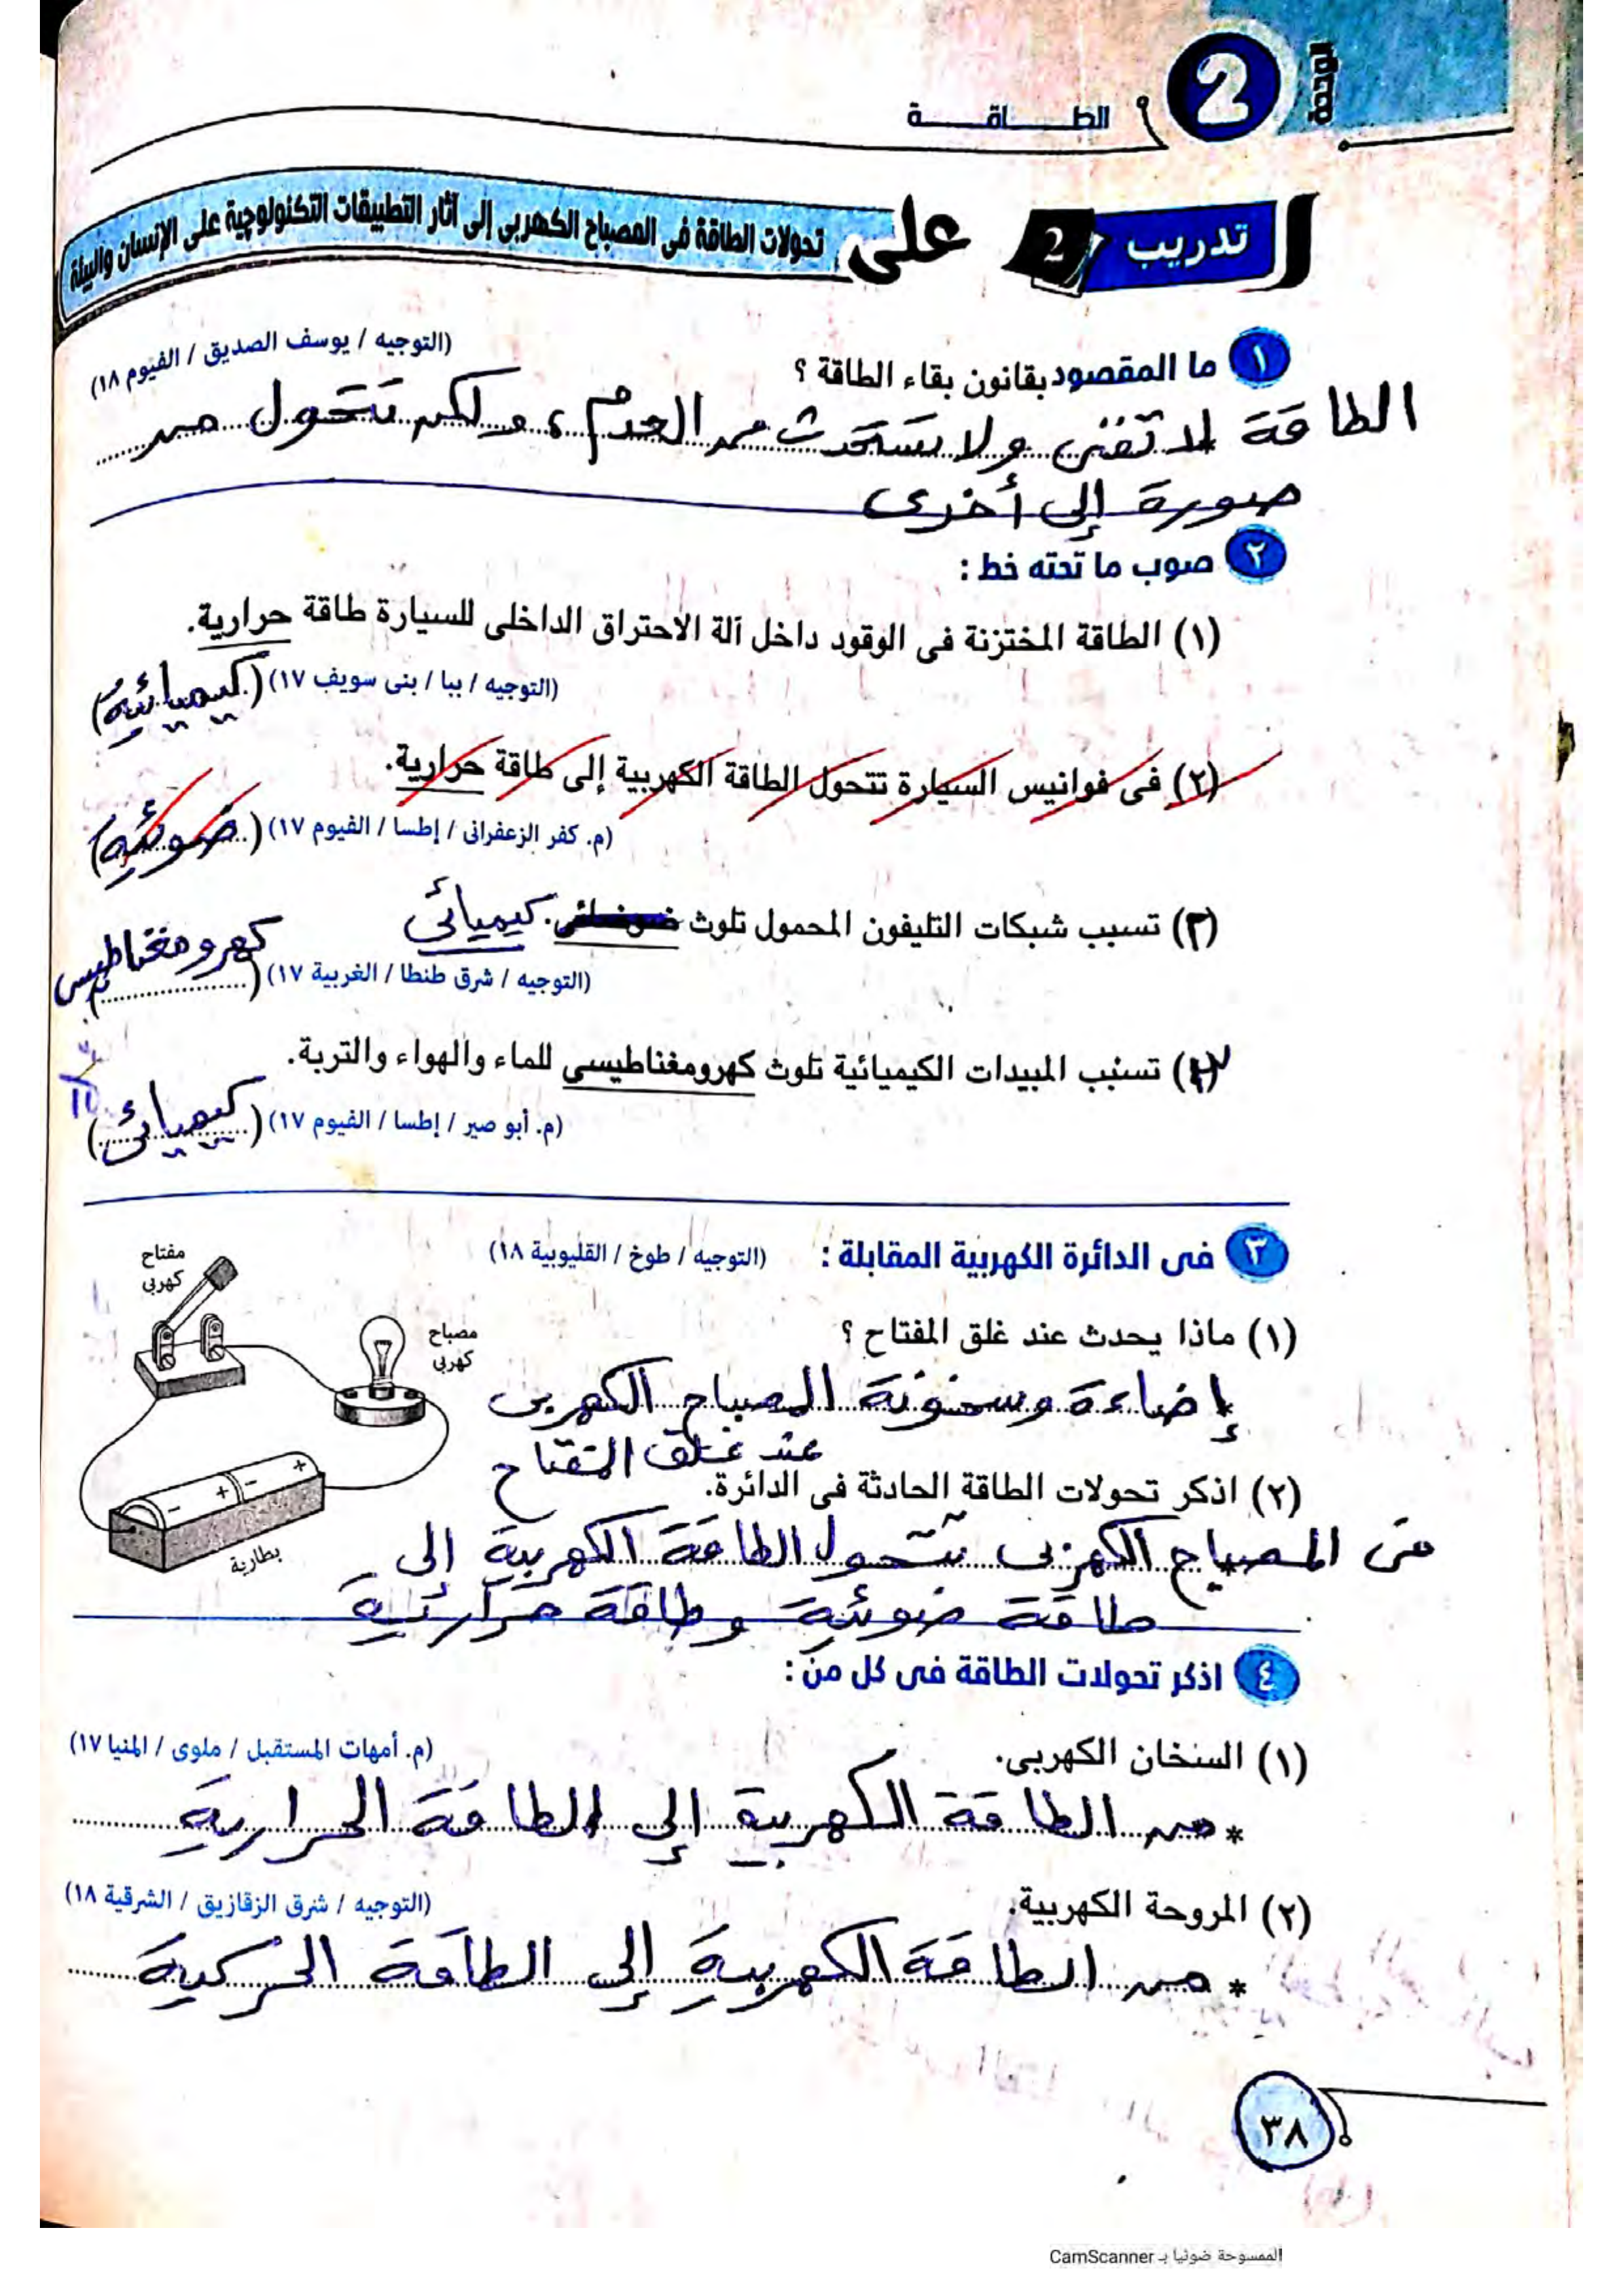 الوحدة
2
الطـــاقـــة
تدريب 2 على تحولات الطاقة فى المصباح الكهربى إلى آثار التطبيقات التكنولوچية على الإنسان والبيئة
١ ما المقصود بقانون بقاء الطاقة ؟ (التوجيه / يوسف الصديق / الفيوم ١٨)
الطاقة لا تفنى ولا تستحدث من العدم، ولكن تتحول من
صورة إلى أخرى
٢ صوب ما تحته خط :
(١) الطاقة المختزنة فى الوقود داخل آلة الاحتراق الداخلى للسيارة طاقة حرارية.
(التوجيه / ببا / بنى سويف ١٧) (كيميائية)
(٢) فى فوانيس السيارة تتحول الطاقة الكهربية إلى طاقة حرارية.
(م. كفر الزعفرانى / إطسا / الفيوم ١٧) (ضوئية)
(٣) تسبب شبكات التليفون المحمول تلوث ضوضائى. كيميائى
(التوجيه / شرق طنطا / الغربية ١٧) (كهرومغناطيسى)
(٣) تسبب المبيدات الكيميائية تلوث كهرومغناطيسى للماء والهواء والتربة.
(م. أبو صير / إطسا / الفيوم ١٧) (كيميائى)
٣ فى الدائرة الكهربية المقابلة : (التوجيه / طوخ / القليوبية ١٨)
مفتاح
كهربى
مصباح
كهربى
بطارية
(١) ماذا يحدث عند غلق المفتاح ؟
* إضاءة وسخونة المصباح الكهربى
عند غلق المفتاح
(٢) اذكر تحولات الطاقة الحادثة فى الدائرة.
فى المصباح الكهربى تتحول الطاقة الكهربية إلى
طاقة ضوئية وطاقة حرارية
٤ اذكر تحولات الطاقة فى كل من :
(١) السخان الكهربى. (م. أمهات المستقبل / ملوى / المنيا ١٧)
* من الطاقة الكهربية إلى الطاقة الحرارية
(٢) المروحة الكهربية. (التوجيه / شرق الزقازيق / الشرقية ١٨)
* من الطاقة الكهربية إلى الطاقة الحركية
٣٨
الممسوحة ضوئيا بـ CamScanner